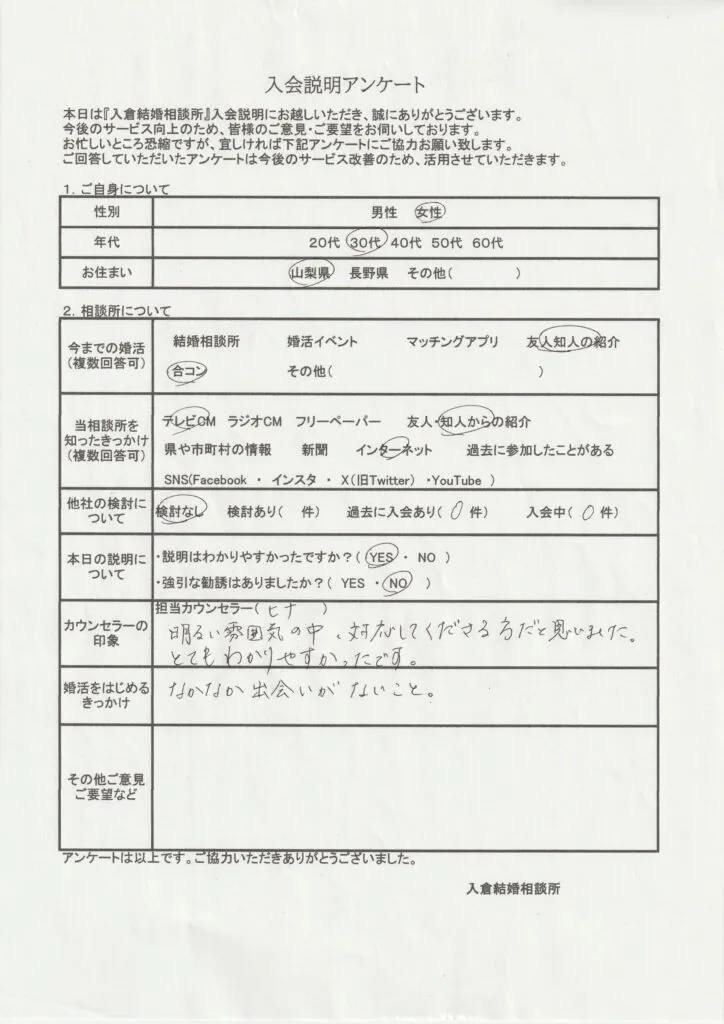 入会説明アンケート
本日は『入倉結婚相談所』入会説明にお越しいただき、誠にありがとうございます。
今後のサービス向上のため、皆様のご意見・ご要望をお伺いしております。
お忙しいところ恐縮ですが、宜しければ下記アンケートにご協力お願い致します。
ご回答していただいたアンケートは今後のサービス改善のため、活用させていただきます。
1. ご自身について
性別 男性 女性
年代 20代 30代 40代 50代 60代
お住まい 山梨県 長野県 その他( )
2. 相談所について
今までの婚活
(複数回答可)
結婚相談所 婚活イベント マッチングアプリ 友人知人の紹介
合コン その他( )
当相談所を
知ったきっかけ
(複数回答可)
テレビCM ラジオCM フリーペーパー 友人・知人からの紹介
県や市町村の情報 新聞 インターネット 過去に参加したことがある
SNS(Facebook ・ インスタ ・ X(旧Twitter) ・YouTube )
他社の検討に
ついて
検討なし 検討あり( 件) 過去に入会あり( 0 件) 入会中( 0 件)
本日の説明に
ついて
・説明はわかりやすかったですか?( YES ・ NO )
・強引な勧誘はありましたか?( YES ・ NO )
カウンセラーの
印象
担当カウンセラー( ヒナ )
明るい雰囲気の中、対応してくださる方だと思いました。
とてもわかりやすかったです。
婚活をはじめる
きっかけ
なかなか出会いがないこと。
その他ご意見
ご要望など
アンケートは以上です。ご協力いただきありがとうございました。
入倉結婚相談所